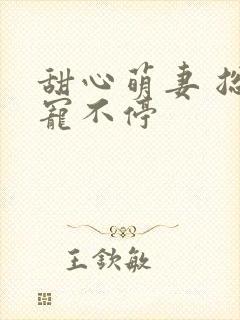 甜心萌妻
寵不停
王钦敏